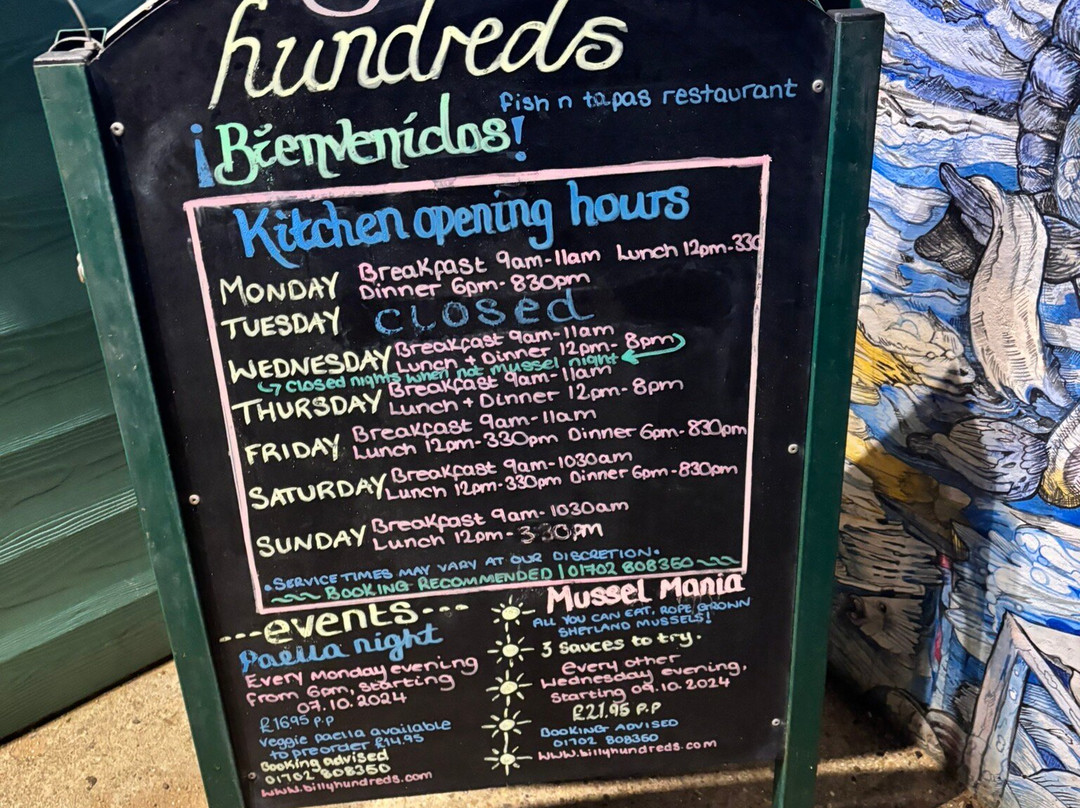 hundreds
fish n tapas restaurant
¡Bienvenidos!
Kitchen opening hours
MONDAY Breakfast 9am-11am Lunch 12pm-330
Dinner 6pm-830pm
TUESDAY CLOSED
WEDNESDAY Breakfast 9am-11am
Lunch + Dinner 12pm-8pm
closed nights when not mussel night
THURSDAY Breakfast 9am-11am
Lunch + Dinner 12pm-8pm
FRIDAY Breakfast 9am-11am
Lunch 12pm-330pm Dinner 6pm-830pm
SATURDAY Breakfast 9am-1030am
Lunch 12pm-330pm Dinner 6pm-830pm
SUNDAY Breakfast 9am-1030am
Lunch 12pm-330pm
•SERVICE TIMES MAY VARY AT OUR DISCRETION•
BOOKING RECOMMENDED | 01702 808360
---events---
Paella night
Every Monday evening
from 6pm, starting
07.10.2024
£16.95 p.p
veggie paella available
to preorder £14.95
Booking advised
01702 808360
www.billyhundreds.com
Mussel Mania
ALL YOU CAN EAT, ROPE GROWN
SHETLAND MUSSELS!
3 sauces to try.
every other
wednesday evening,
starting 09.10.2024
£21.95 p.p
BOOKING ADVISED
01702 808360
www.billyhundreds.com